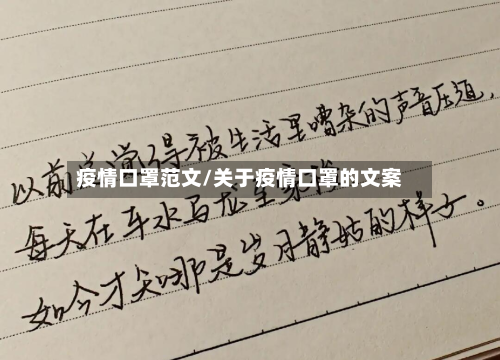 以前总觉得被生活里嘈杂的声音压迫，
疫情口罩范文/关于疫情口罩的文案
每天在车水马龙里
如今才知那是岁月静好的样子。